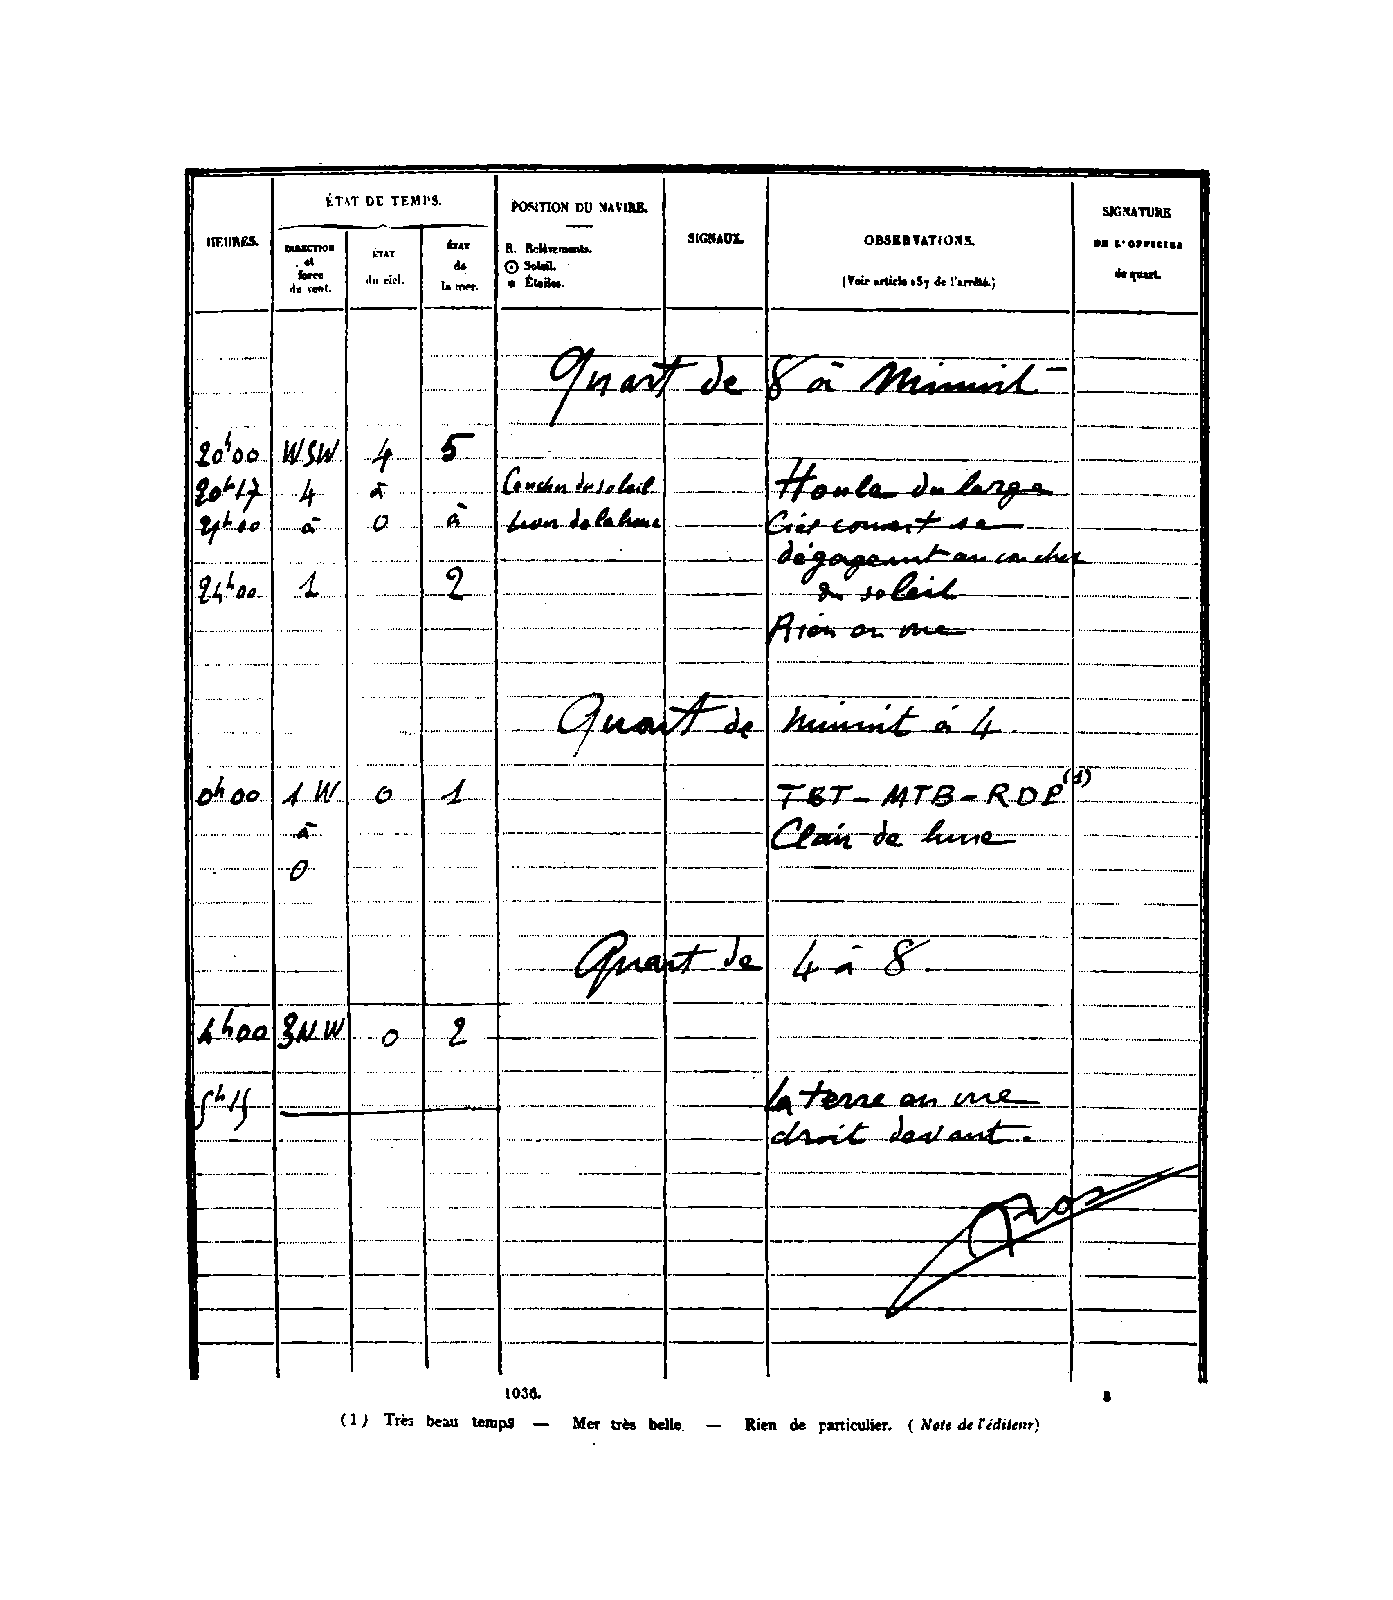 ÉTAT DE TEMPS.
POSITION DU NAVIRE.
SIGNATURE
HEURES.
DIRECTION
et
force
du vent.
ÉTAT
du ciel.
ÉTAT
de
la mer.
R. Relèvements.
Soleil.
* Étoiles.
SIGNAUX.
OBSERVATIONS.
(Voir article 157 de l'arrêté.)
DE L'OFFICIER
de quart.
Quart de 8 à Minuit
20h00 WSW 4 5
20h17 4 à Coucher du soleil Houle du large
21h00 à 0 à Lever de la lune Ciel couvert se
dégageant au coucher
24h00 1 2 du soleil
Rien en vue
Quart de minuit à 4
0h00 1 W 0 1 TBT - MTB - RDP (1)
à Clair de lune
0
Quart de 4 à 8
4h00 3NW 0 2
5h15 La terre en vue
droit devant.
1036.
(1) Très beau temps — Mer très belle — Rien de particulier. (Note de l'éditeur)